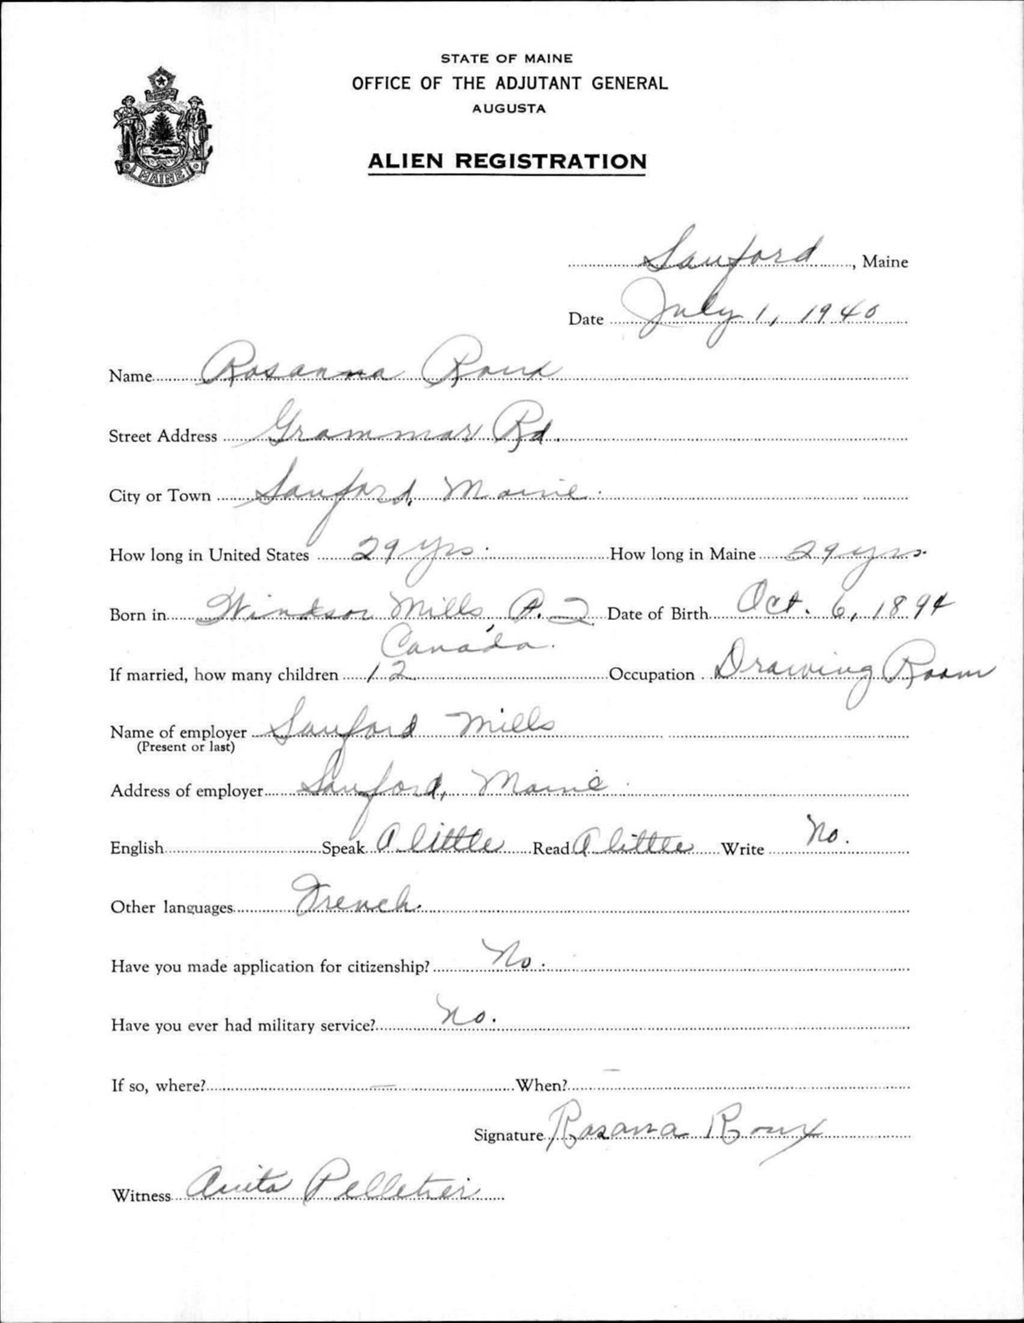 STATE OF MAINE
OFFICE OF THE ADJUTANT GENERAL
AUGUSTA
ALIEN REGISTRATION
MAINE
Sanford, Maine
Date July 1, 1940
Name Rosanna Roux
Street Address Grammar Rd.
City or Town Sanford, Maine.
How long in United States 29 yrs. How long in Maine 29 yrs.
Born in Windsor Mills, P.Q Date of Birth Oct. 6, 1894
Canada.
If married, how many children 12 Occupation Drawing Room
Name of employer Sanford Mills
(Present or last)
Address of employer Sanford, Maine.
English Speak A little Read A little Write No.
Other languages French.
Have you made application for citizenship? No.
Have you ever had military service? No.
If so, where? — When? —
Signature Rosana Roux
Witness Anita Pelletier